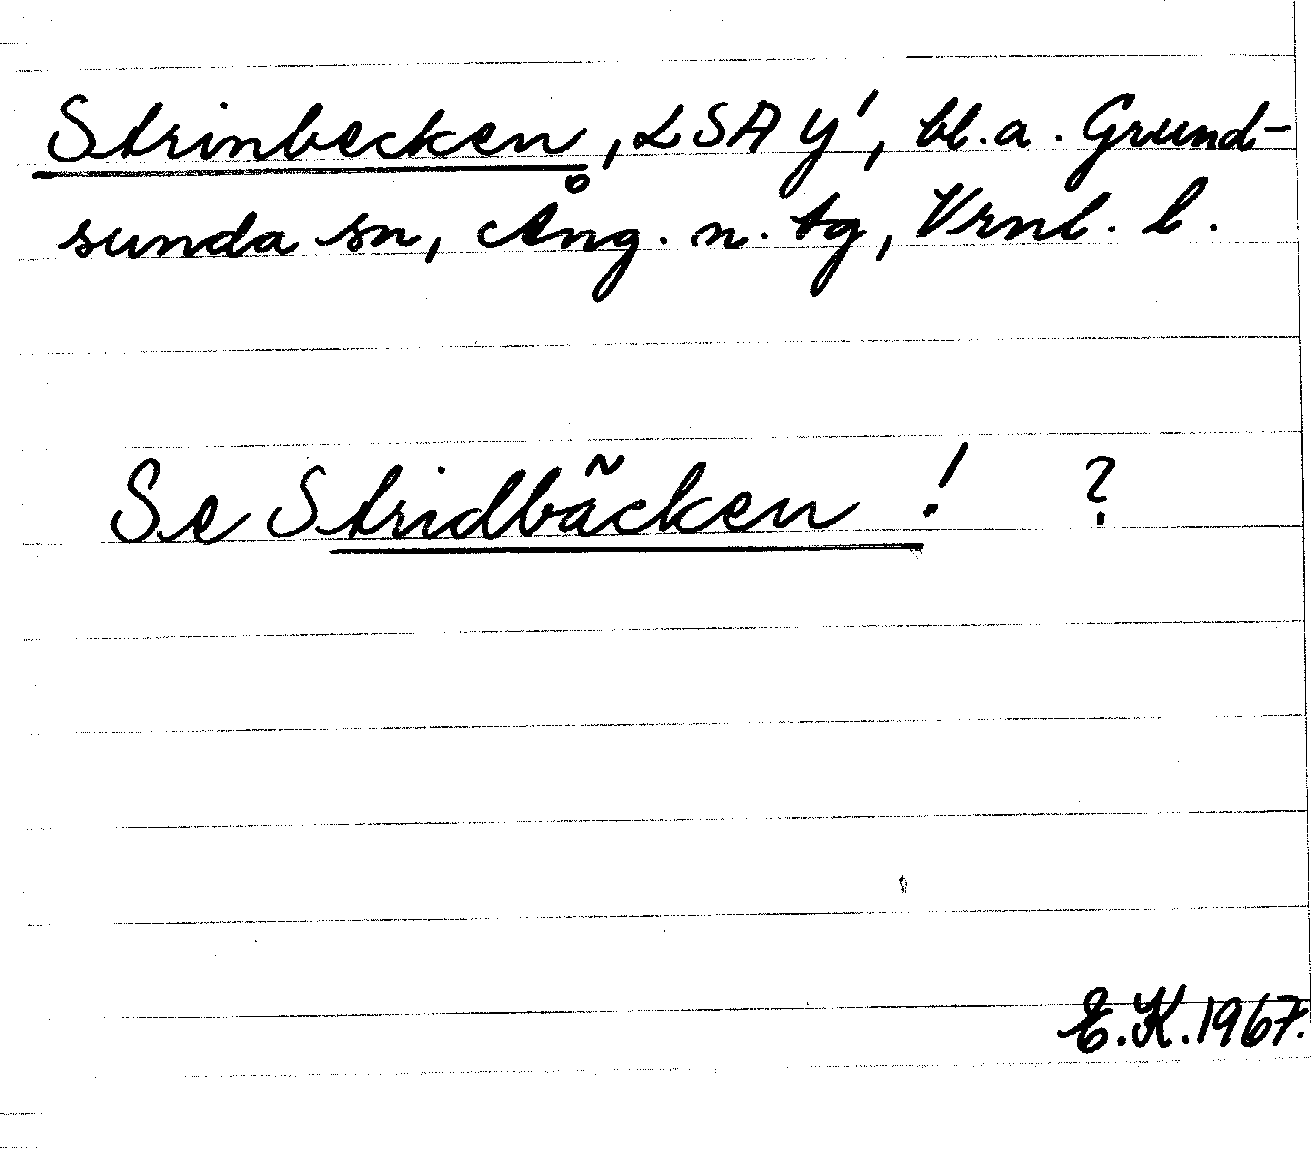 Strinbecken, LSA Y', bl.a. Grund-
sunda sn, Ång. n. tg, Vrnl. l.
Se Stridbäcken! ?
E.K. 1967.